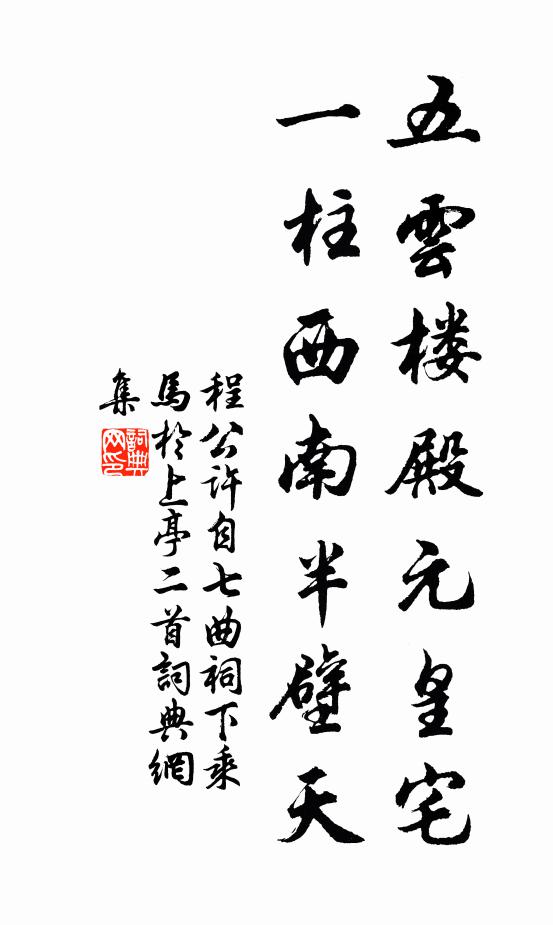 五雲楼殿元皇宅
一柱西南半壁天
程公许自七曲祠下乘
馬於上亭二首詞典網
集
詞典
网印